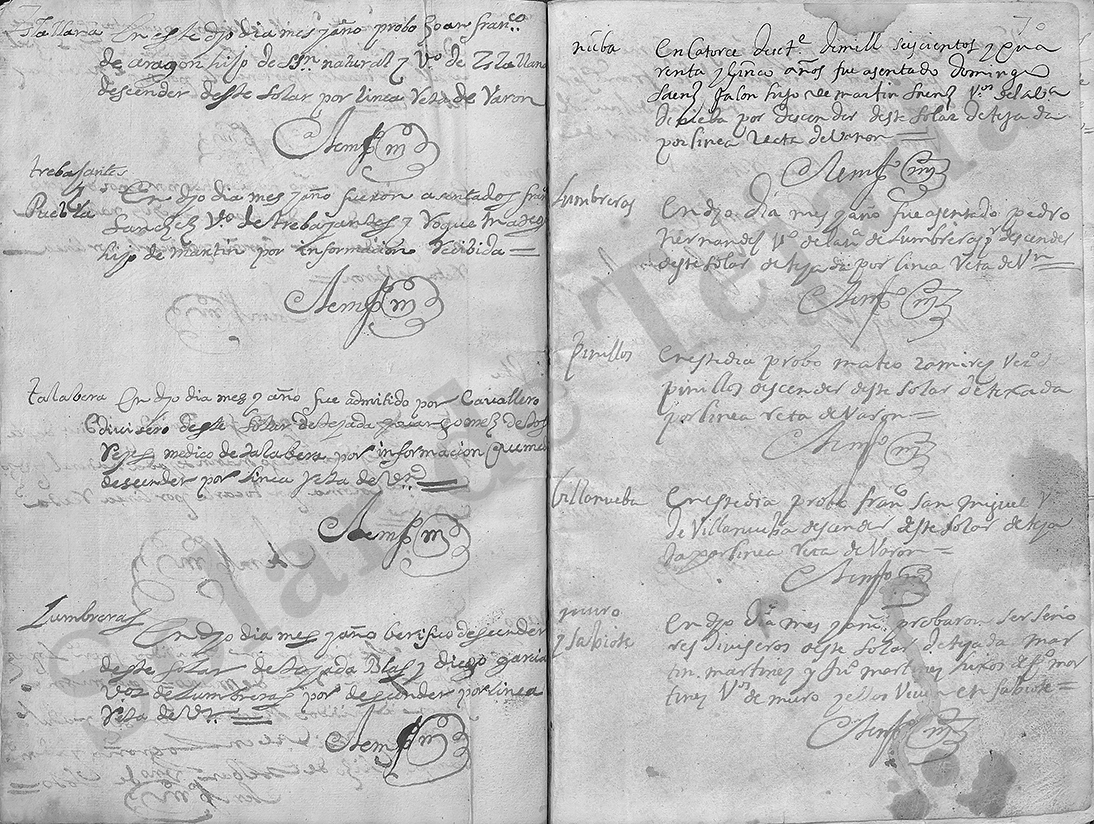 en este dho dia mes y año probo Joan fran.co
de aragon hijo de natural y V.o de
descender deste solar por linea Reta de Varon
trebajantes
Puebla
En dho dia mes y año fueron asentados fran.co
Sanchez V.o de trebajantes y Roque
hijo de martin por informacion Recibida
talabera En dho dia mes y año fue admitido por Cavallero
divisero deste solar de tejada gomez de los
Reyes medico de talabera por informacion
descender por linea Reta de V.n
Lumbreras
En dho dia mes y año berifico descender
deste solar de tejada Blas y diego garcia
V.os de Lumbreras por descender por linea
Reta de V.n
7o
nieba
En Catorce de oct.e de mill seyscientos y qua
renta y cinco años fue asentado Domingo
Saenz Jalon hijo de martin Saenz V.os de la villa
de nieba por descender deste solar de tejada
por linea Recta de Varon
Lumbreras
En dho dia mes y año fue asentado pedro
hernandez V.o de la v.a de Lumbreras por descender
deste solar de tejada por linea Reta de V.n
Pinillos
En este dia probo mateo ramirez vez.o de
pinillos descender deste solar de texada
por linea reta de Varon
Villanueba
En este dia probo fran.co san miguel V.o
de Villanueba descender deste solar de teja
da por linea Reta de Varon
muro
y sabiote
En dho dia mes y año probaron ser seño
res diviseros deste solar de tejada mar
tin martinez y Ju.o martinez hijos de mar
tinez V.os de muro y ellos viven en sabiote
Solar de Tejada